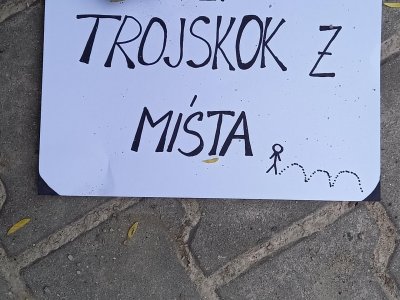 TROJSKOK Z
MÍSTA